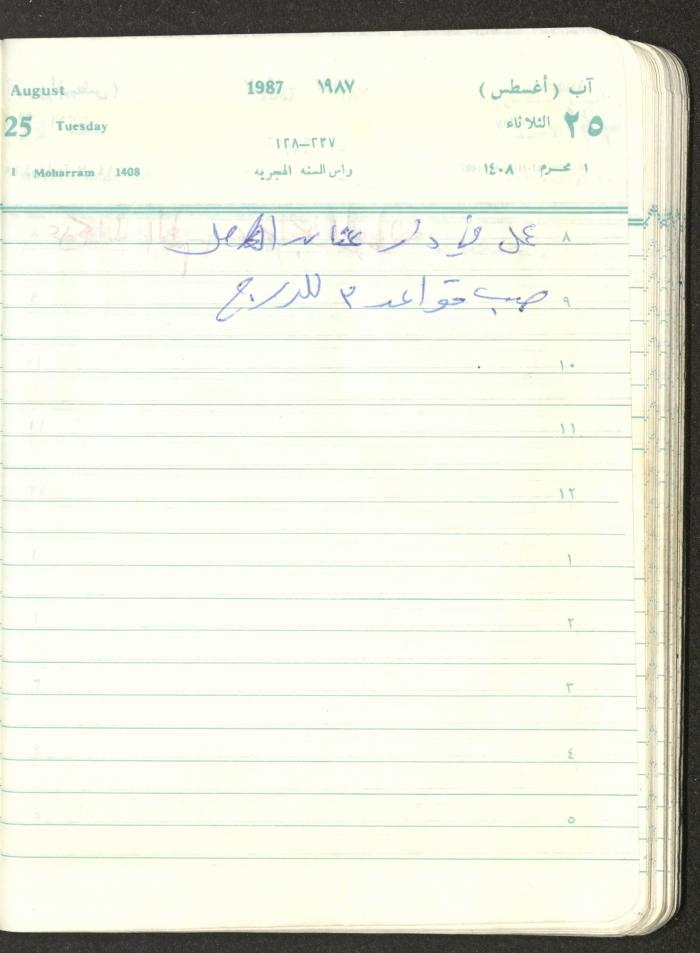 August 1987 ١٩٨٧ آب (أغسطس)
25 Tuesday ٢٥ الثلاثاء
٢٣٧—١٢٨
1 Moharram 1408 راس السنه الهجريه ١ محرم ١٤٠٨
٨ عمل في دار
٩ صب قواعد ٣ للدرج
١٠
١١
١٢
١
٢
٣
٤
٥